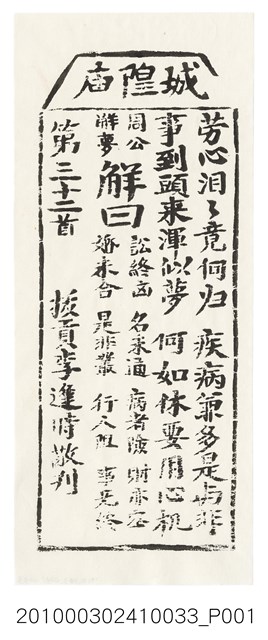 城隍庙
劳心泪々竟何归 疾病兼多是与非
事到頭来渾似夢 何如休要用心机
周公解夢
解曰
訟終凶 名未通 病者險 財亦空
婚未合 是非叢 行人阻 事无終
第三十二首 拔貢李逢時敬刋
201000302410033_P001